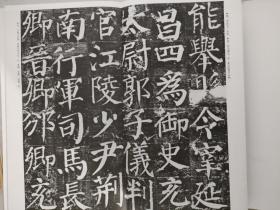 能舉縣令宰延
昌四為御史充
太尉郭子儀判
官江陵少尹荊
南行軍司馬長
卿晉卿邠卿充